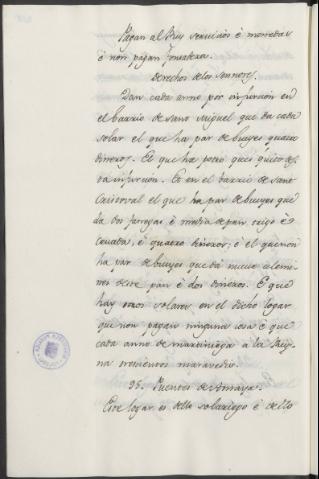 Pagan al Rey servicios é monedas
é non pagan fonsadera
Derechos de los Sennores.
Dan cada anno por infurcion en
el barrio de Sant Miguel que da cada
solar el que ha par de bueyes quatro
dineros. E el que ha
da infurcion. E en el barrio de Sant
Cristoval el que ha par de bueyes que
da dos fanegas é media de pan trigo é
cevada, é quatro dineros; é el que non
ha par de bueyes que da nueve celemi
nes deste pan é dos dineros. E que
hay otros solares en el dicho logar
que non pagan ninguna cosa é que
cada anno de martiniega á la Rey-
na trecientos maravedis.
95. Fuentes de Amaya.
Este logar es dello solariego é dello